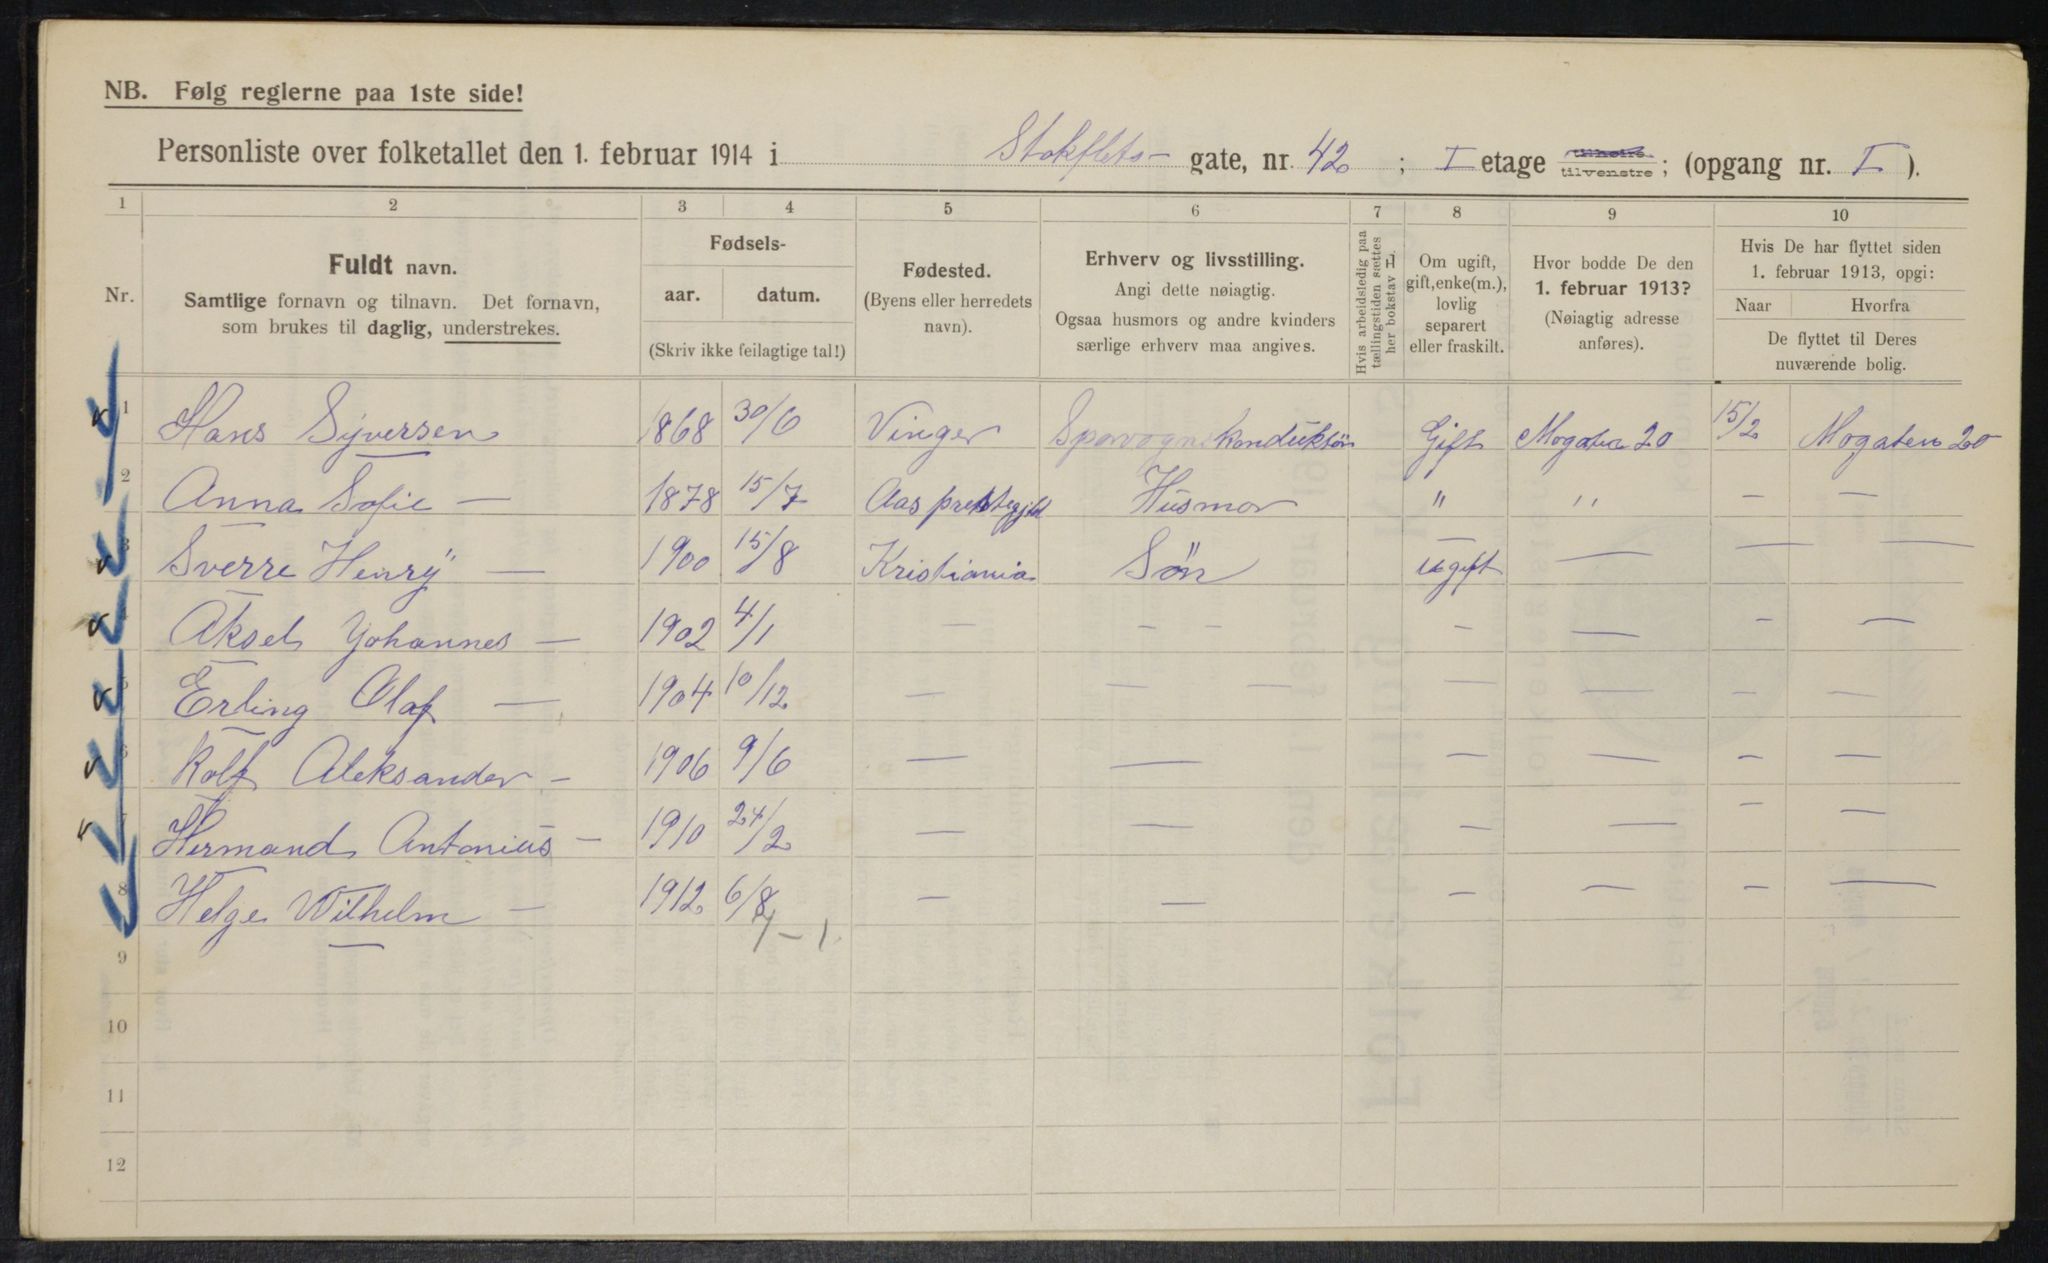 NB. Følg reglerne paa 1ste side!
Personliste over folketallet den 1. februar 1914 i Stokflets- gate, nr. 42 ; I etage tilhøire tilvenstre ; (opgang nr. I ).
1 2 3 4 5 6 7 8 9 10
Nr.
Fuldt navn.
Samtlige fornavn og tilnavn. Det fornavn,
som brukes til daglig, understrekes.
Fødsels-
aar. datum.
(Skriv ikke feilagtige tal!)
Fødested.
(Byens eller herredets
navn).
Erhverv og livsstilling.
Angi dette nøiagtig.
Ogsaa husmors og andre kvinders
særlige erhverv maa angives.
Hvis arbeidsledig paa
tællingstiden sættes
her bokstav L.
Om ugift,
gift, enke(m.),
lovlig
separert
eller fraskilt.
Hvor bodde De den
1. februar 1913?
(Nøiagtig adresse
anføres).
Hvis De har flyttet siden
1. februar 1913, opgi:
Naar Hvorfra
De flyttet til Deres
nuværende bolig.
1 Hans Syversen 1868 30/6 Vinger Sporvognskonduktør Gift Mogata 20 15/2 Mogaten 20
2 Anna Sofie — 1878 15/7 Aas prestegjeld Husmor " " — —
3 Sverre Henry — 1900 15/8 Kristiania Søn ugift — — —
4 Aksel Johannes — 1902 4/1 — — — — — — —
5 Erling Olaf — 1904 10/12 — — — — — — —
6 Rolf Aleksander — 1906 9/6 — — — — — —
7 Hermand Antonius — 1910 24/2 — — — — — —
8 Helge Wilhelm — 1912 6/8 — — — — — —
7 – 1.
9
10
11
12